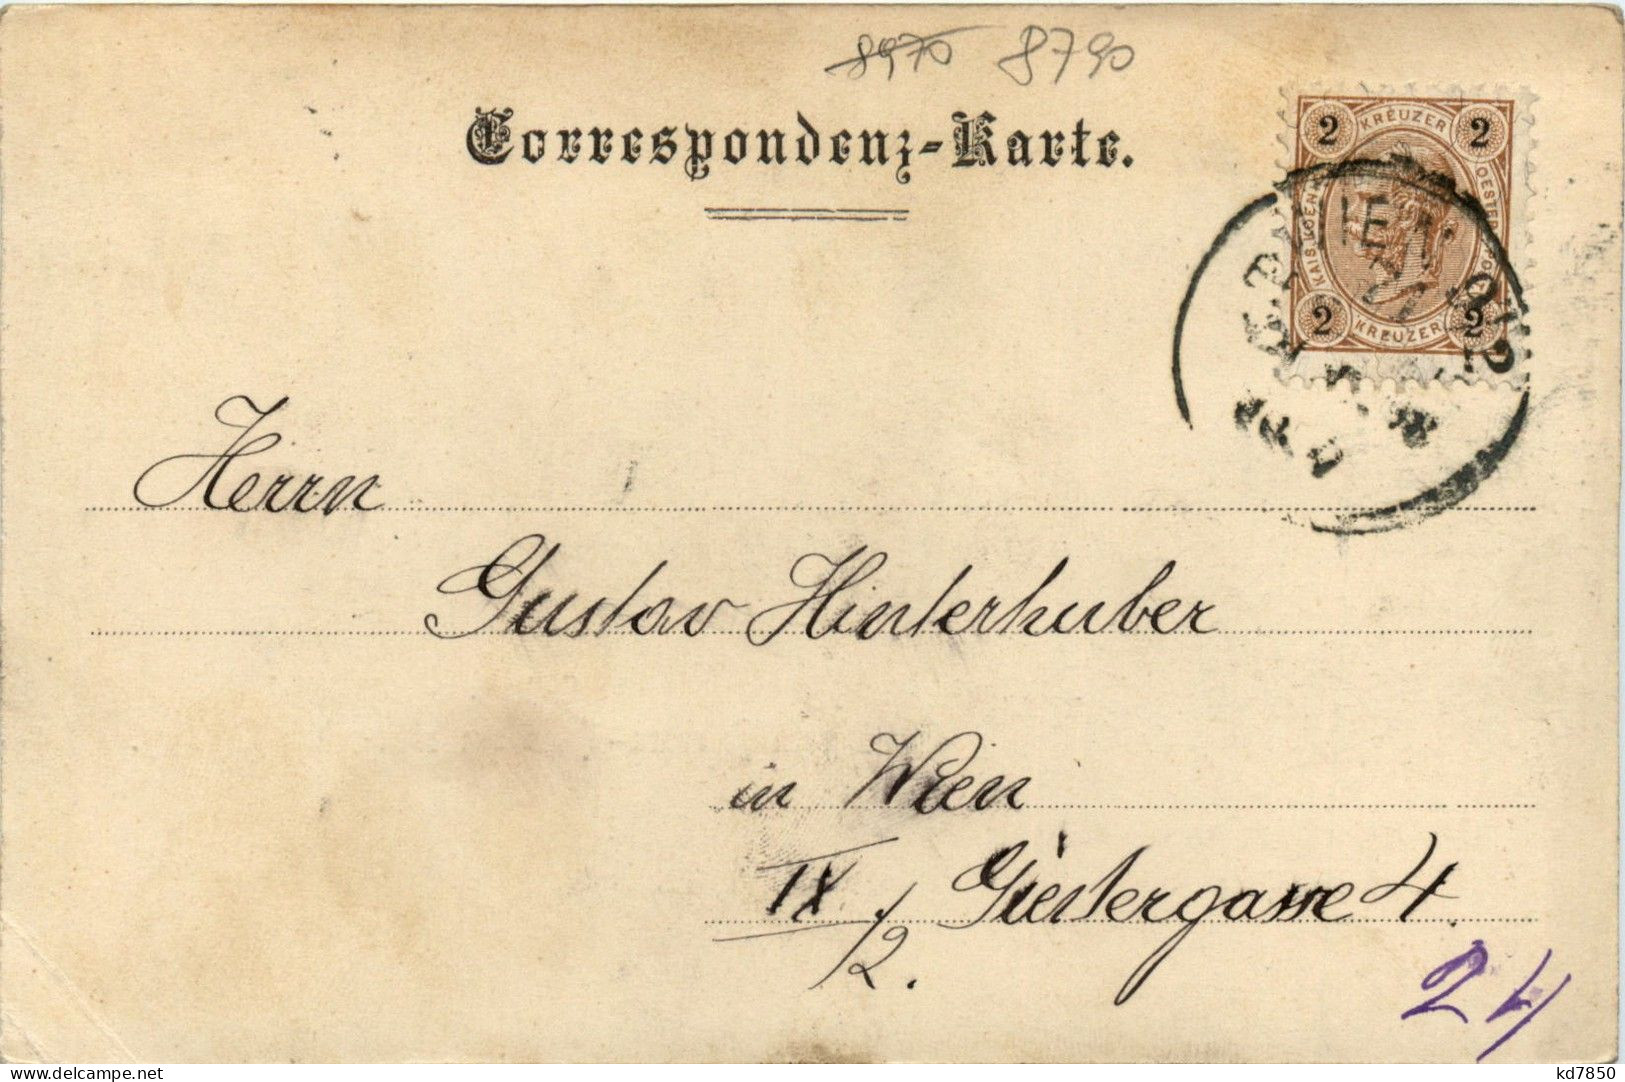 8970 8790
Correspondenz-Karte.
2 KREUZER 2
KAIS. KOEN
2 KREUZER 2
Herrn
Gustav Hinterhuber
in Wien
IX/2. Giestergasse 4.
24
delcampe.net
kd7850